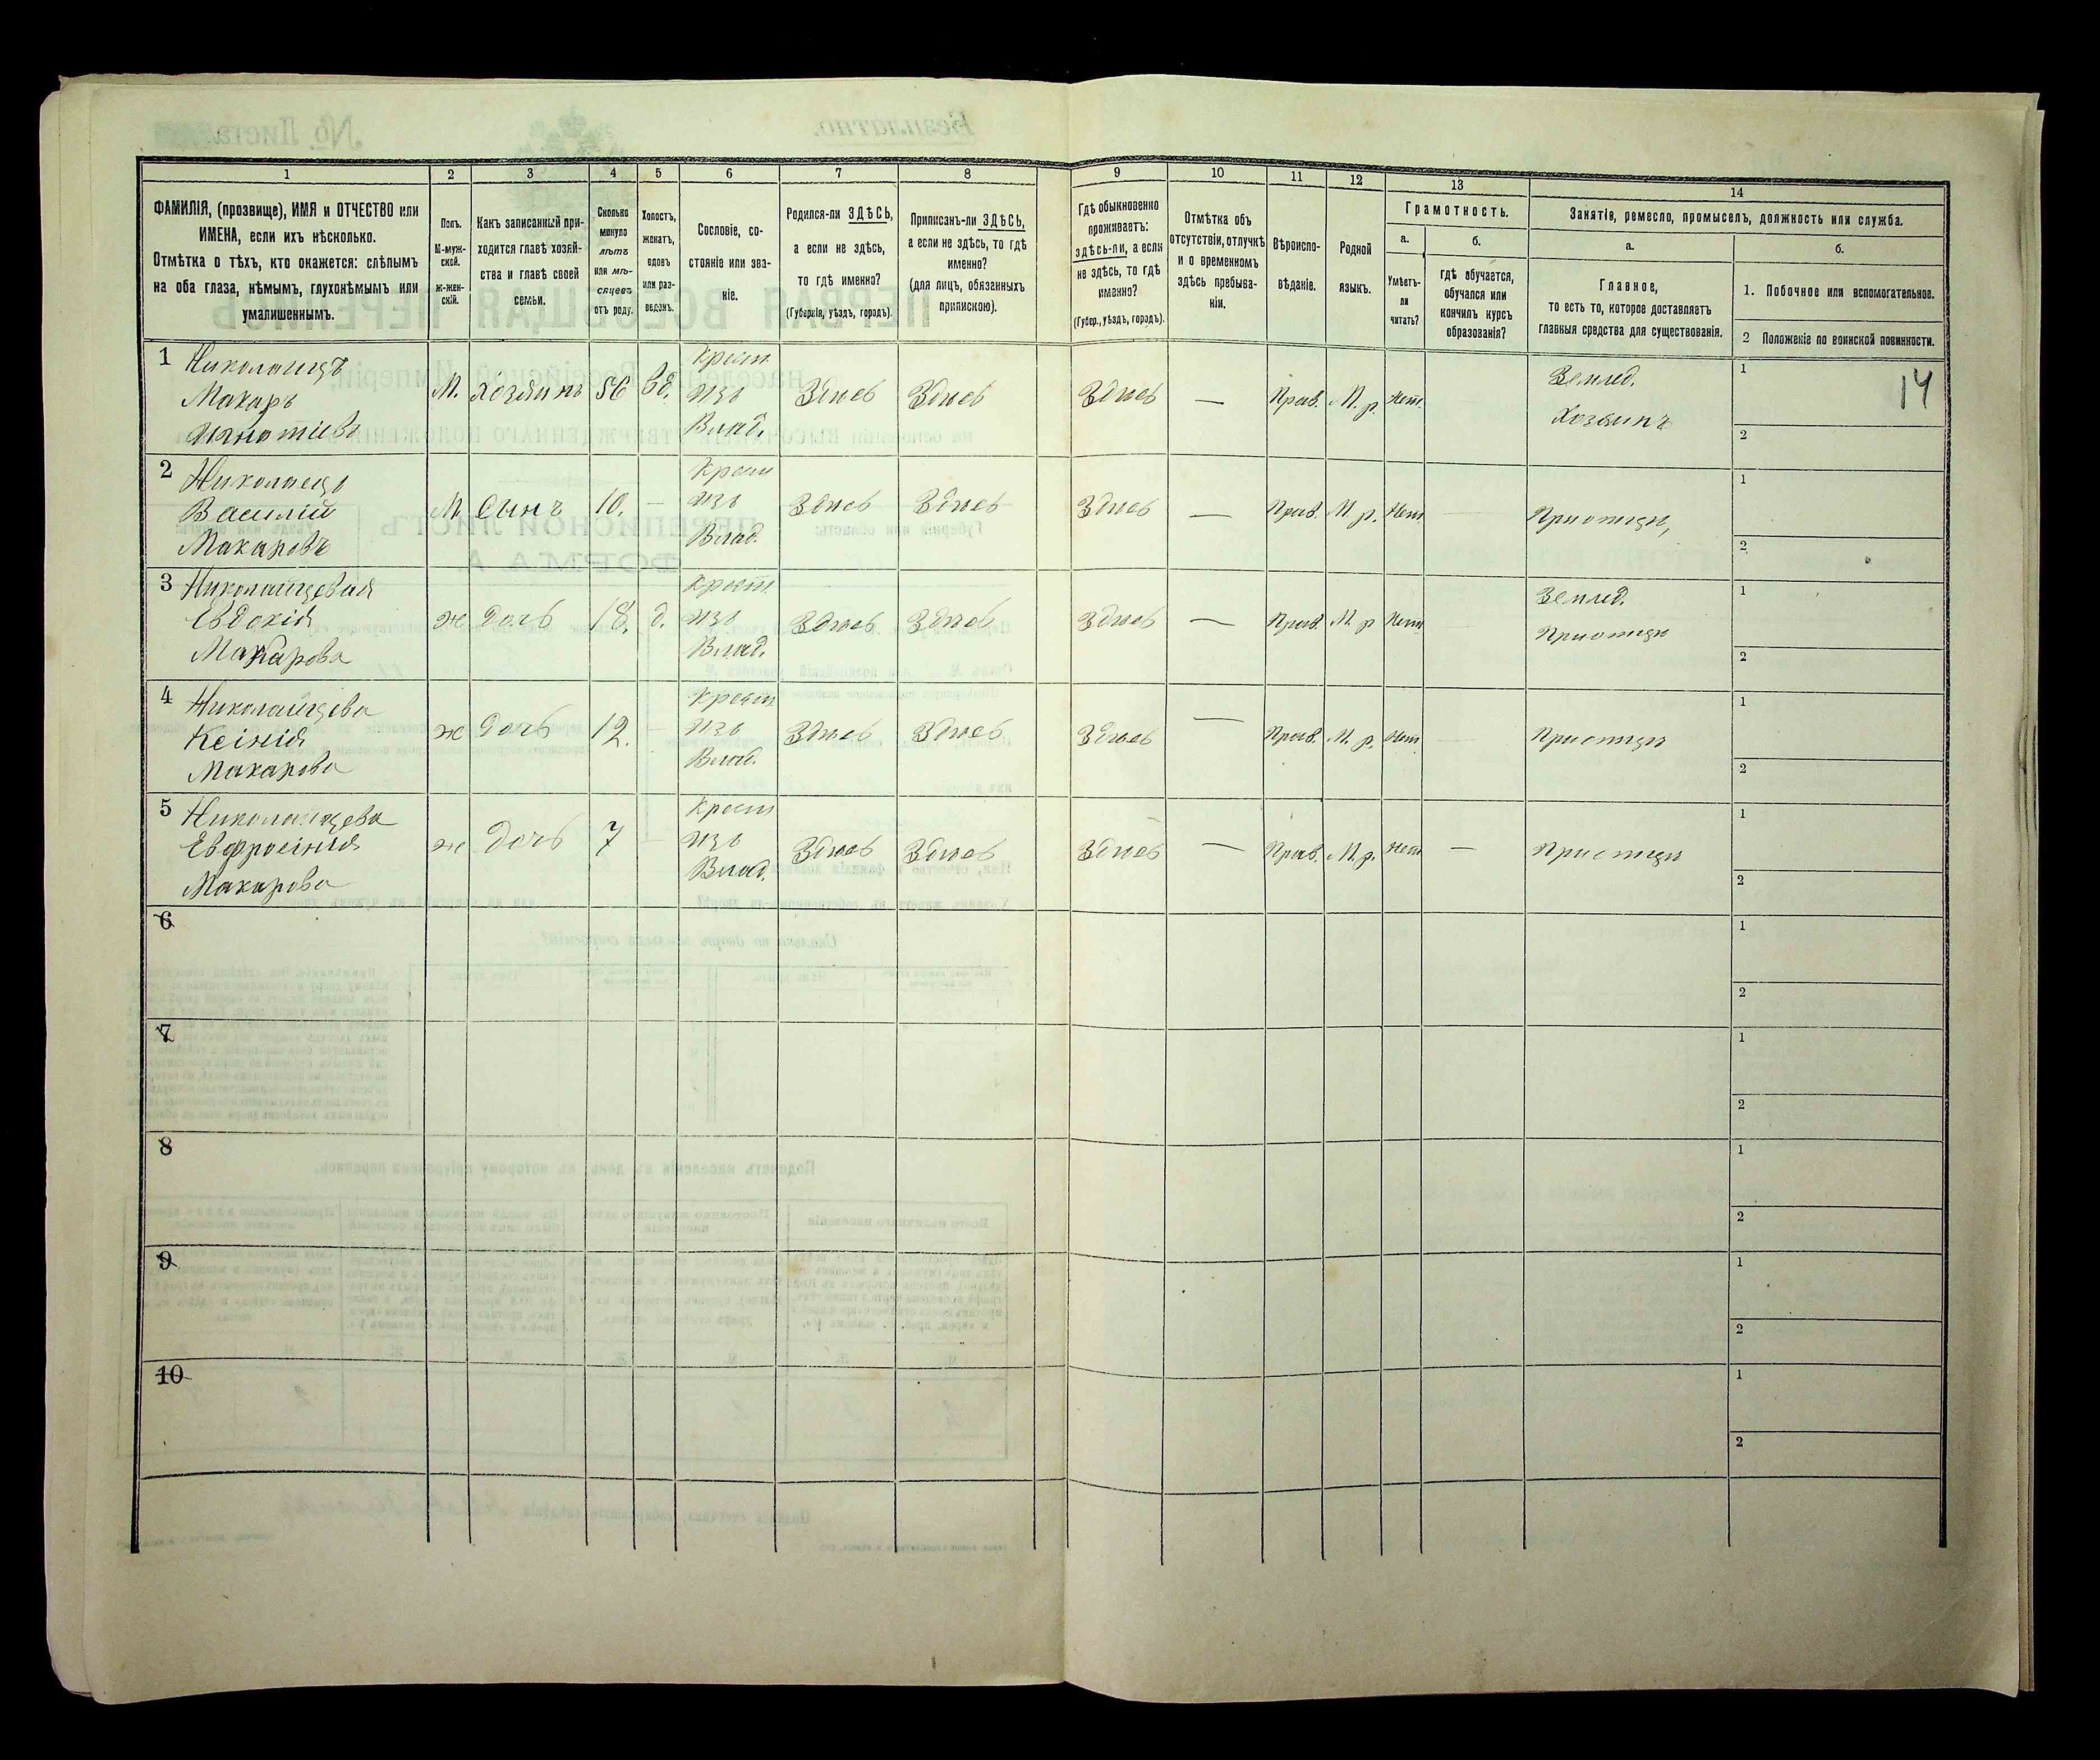 1 2 3 4 5 6 7 8 9 10 11 12 13 14
ФАМИЛІЯ, (прозвище), ИМЯ и ОТЧЕСТВО или
ИМЕНА, если ихъ нѣсколько.
Отмѣтка о тѣхъ, кто окажется: слѣпымъ
на оба глаза, нѣмымъ, глухонѣмымъ или
умалишеннымъ.
Полъ.
М-муж-
ской.
ж-жен-
скій.
Какъ записанный при-
ходится главѣ хозяй-
ства и главѣ своей
семьи.
Сколько
минуло
лѣтъ
или мѣ-
сяцевъ
отъ роду.
Холостъ,
женатъ,
вдовъ
или раз-
веденъ.
Сословіе, со-
стояніе или зва-
ніе.
Родился-ли ЗДѢСЬ,
а если не здѣсь,
то гдѣ именно?
(Губернія, уѣздъ, городъ).
Приписанъ-ли ЗДѢСЬ,
а если не здѣсь, то гдѣ
именно?
(для лицъ, обязанныхъ
припискою).
Гдѣ обыкновенно
проживаетъ:
здѣсь-ли, а если
не здѣсь, то гдѣ
именно?
(Губер., уѣздъ, городъ).
Отмѣтка объ
отсутствіи, отлучкѣ
и о временномъ
здѣсь пребыва-
ніи.
Вѣроиспо-
вѣданіе.
Родной
языкъ.
Грамотность.
а.
Умѣетъ-
ли
читать?
б.
гдѣ обучается,
обучался или
кончилъ курсъ
образованія?
Занятіе, ремесло, промыселъ, должность или служба.
а.
Главное,
то есть то, которое доставляетъ
главныя средства для существованія.
б.
1. Побочное или вспомогательное.
2 Положеніе по воинской повинности.
14
1 Николаецъ
Макаръ
М. Хозяинъ 56 вд.
Крест
изъ
Влад.
Здѣсь Здѣсь Здѣсь — Прав. М. р. Нет.
Землед.
Хозяинъ
1
2
2 Николаецъ
Василій
Макаровъ
М. Сынъ 10. —
Крест
изъ
Влад.
Здѣсь Здѣсь Здѣсь — Прав. М. р. Нет
При отцѣ,
1
2
3 Николайцевая
Евдокія
Макарова
ж Дочь 18. д.
Крест.
изъ
Влад.
Здѣсь Здѣсь Здѣсь — Прав. М. р Нет
Землед.
При отцѣ
1
2
4 Николайцева
Ксінія
Макарова
ж Дочь 12. —
Крест
изъ
Влад.
Здѣсь Здѣсь Здѣсь — Прав. М. р. Нет
При отцѣ
1
2
5 Николайцева
Евфросінія
Макарова
ж Дочь 7 —
Крест
изъ
Влад.
Здѣсь Здѣсь Здѣсь — Прав. М. р. Нет —
При отцѣ
1
2
6
1
2
7
1
2
8
1
2
9
1
2
10
1
2